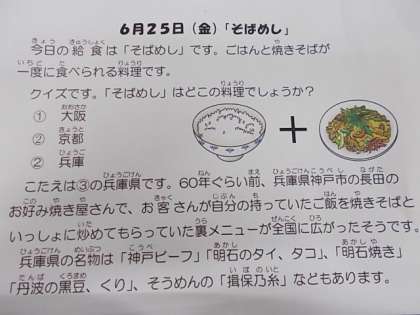 6月25日（金）「そばめし」
今日の給食は「そばめし」です。ごはんと焼きそばが
一度に食べられる料理です。
クイズです。「そばめし」はどこの料理でしょうか？
① 大阪
② 京都
② 兵庫
こたえは③の兵庫県です。60年ぐらい前、兵庫県神戸市の長田の
お好み焼き屋さんで、お客さんが自分の持っていたご飯を焼きそばと
いっしょに炒めてもらっていた裏メニューが全国に広がったそうです。
兵庫県の名物は「神戸ビーフ」「明石のタイ、タコ」、「明石焼き」
「丹波の黒豆、くり」、そうめんの「揖保乃糸」などもあります。